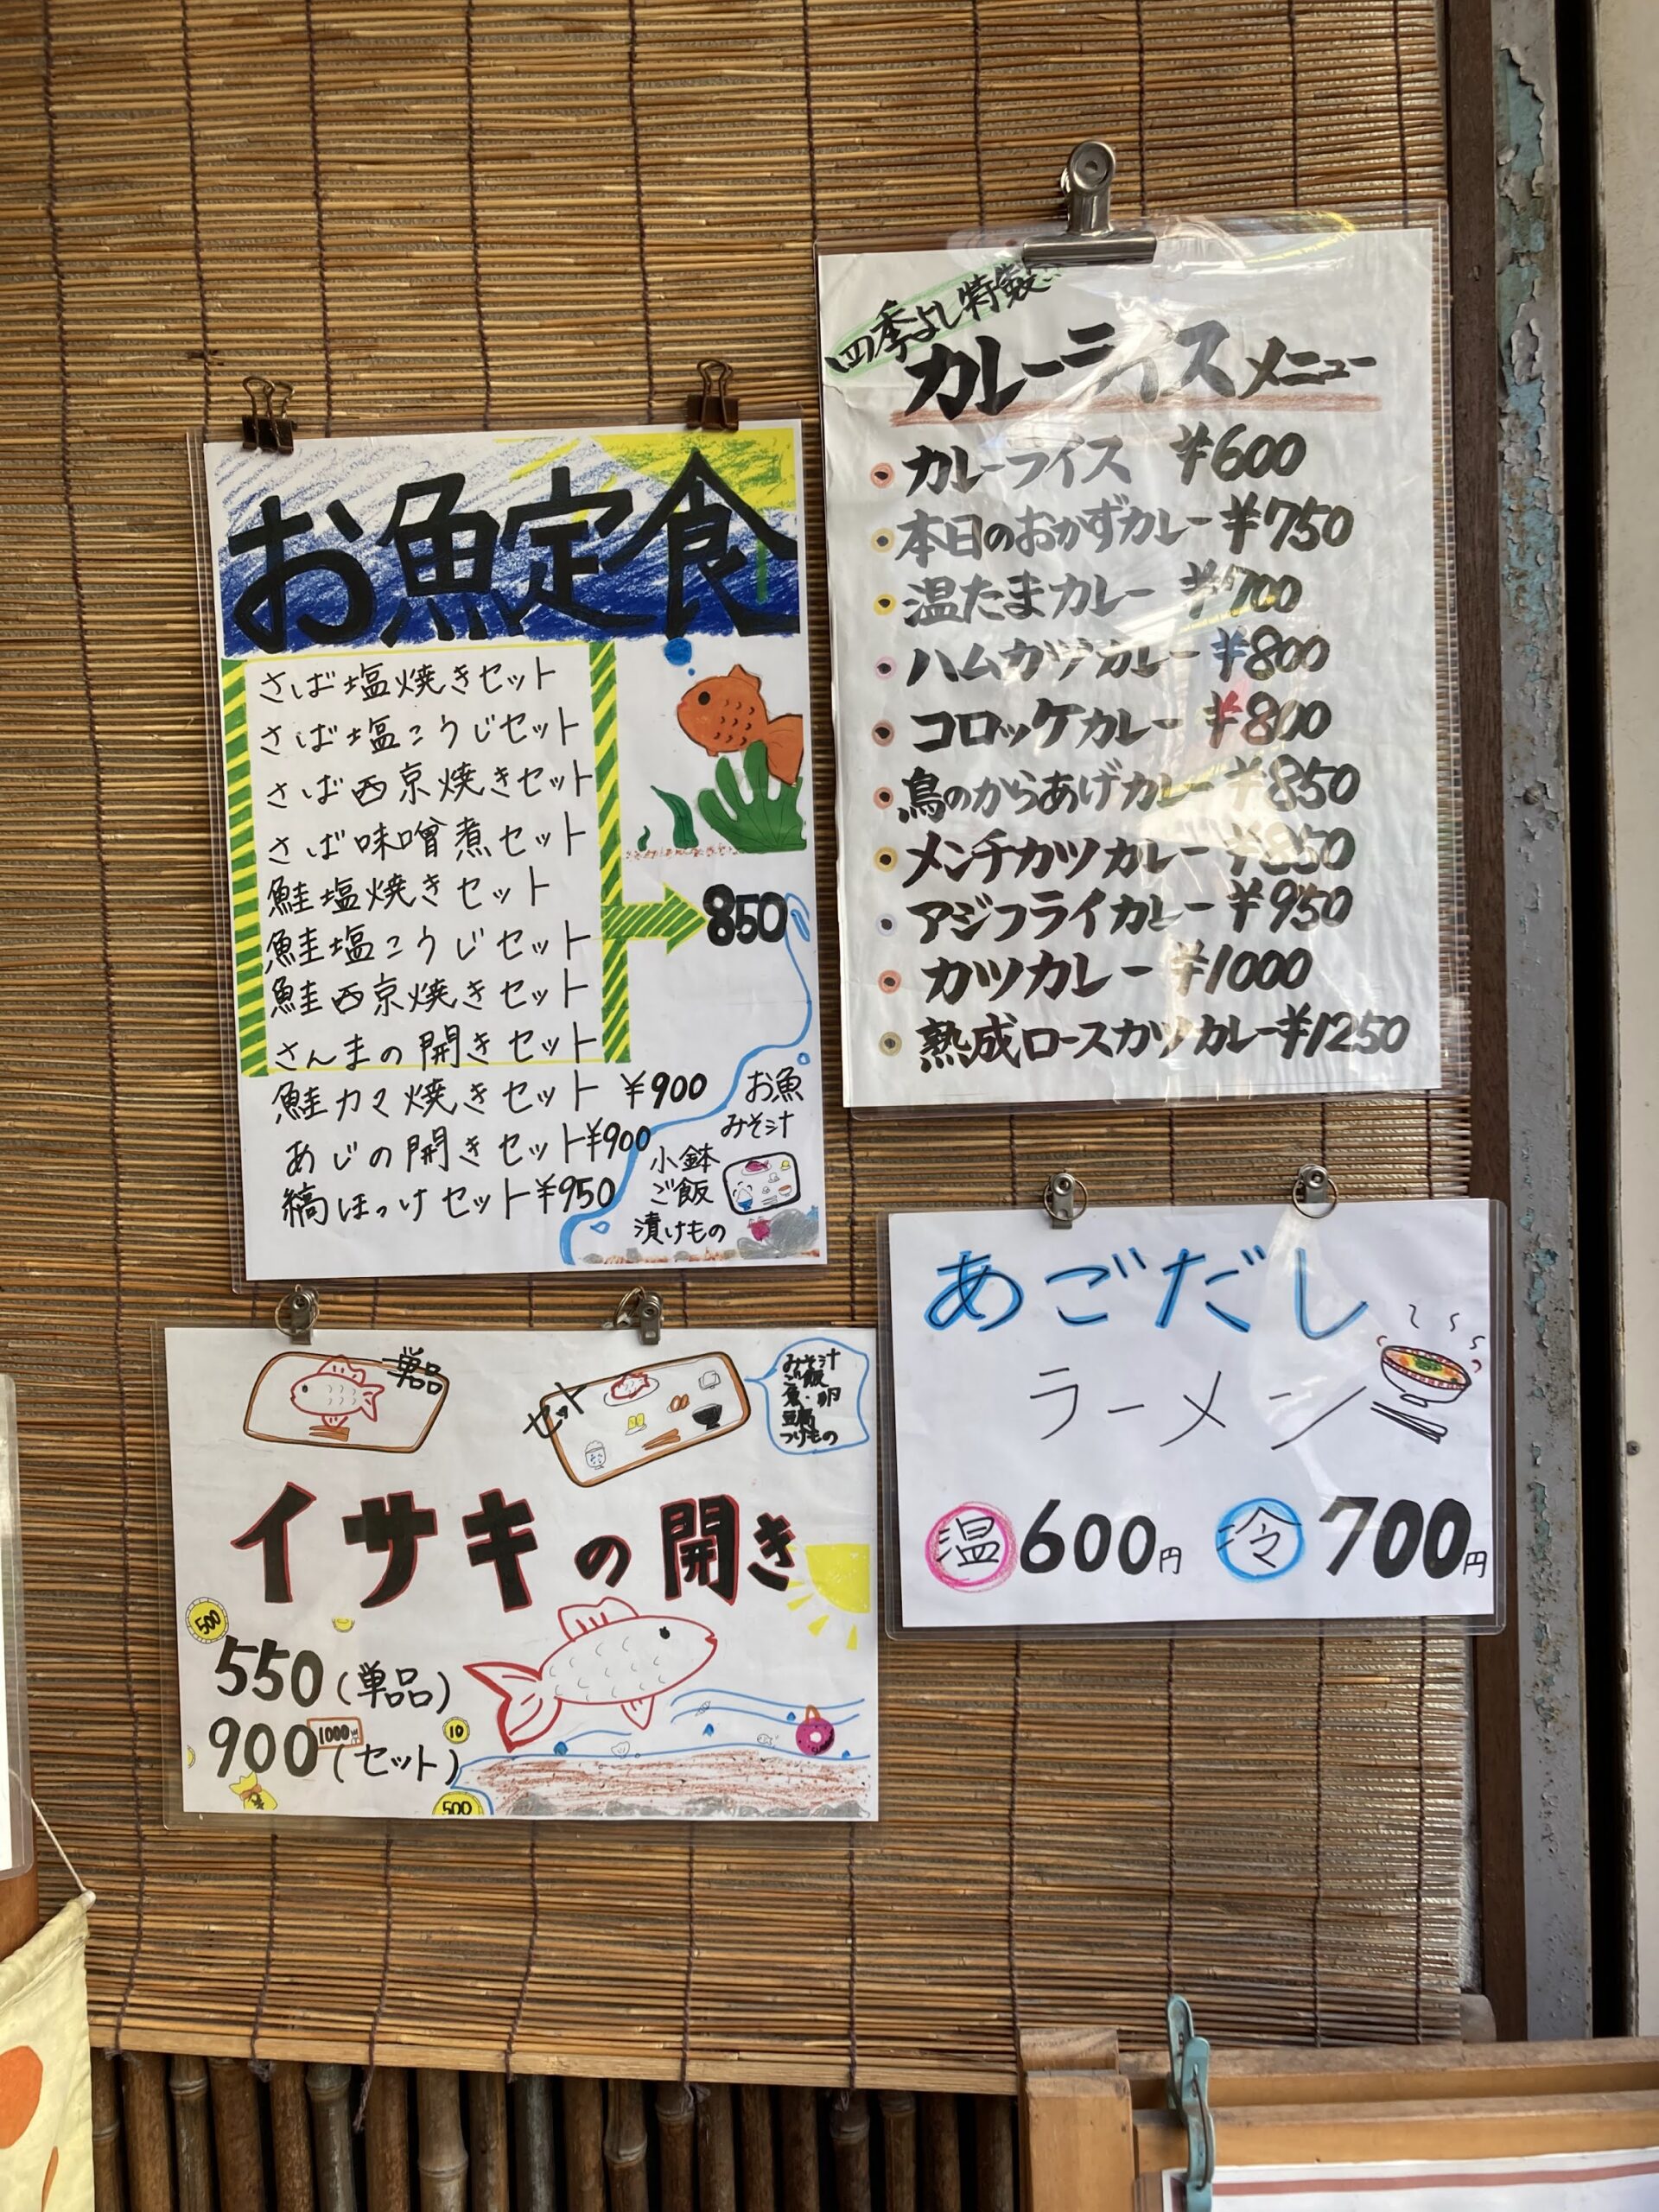 お魚定食
さば塩焼きセット
さば塩こうじセット
さば西京焼きセット
さば味噌煮セット
鮭塩焼きセット
鮭塩こうじセット
鮭西京焼きセット
さんまの開きセット
850
鮭カマ焼きセット ¥900
あじの開きセット¥900
縞ほっけセット¥950
お魚
みそ汁
小鉢
ご飯
漬けもの
四季よし特製
カレーライスメニュー
カレーライス ¥600
本日のおかずカレー ¥750
温たまカレー ¥700
ハムカツカレー ¥800
コロッケカレー ¥800
鳥のからあげカレー ¥850
メンチカツカレー ¥850
アジフライカレー ¥950
カツカレー ¥1000
熟成ロースカツカレー¥1250
単品
セット
みそ汁
ご飯
魚・卵
豆腐
つけもの
イサキの開き
500
550(単品)
900(セット)
1000
10
500
あごだし
ラーメン
温 600円 冷 700円